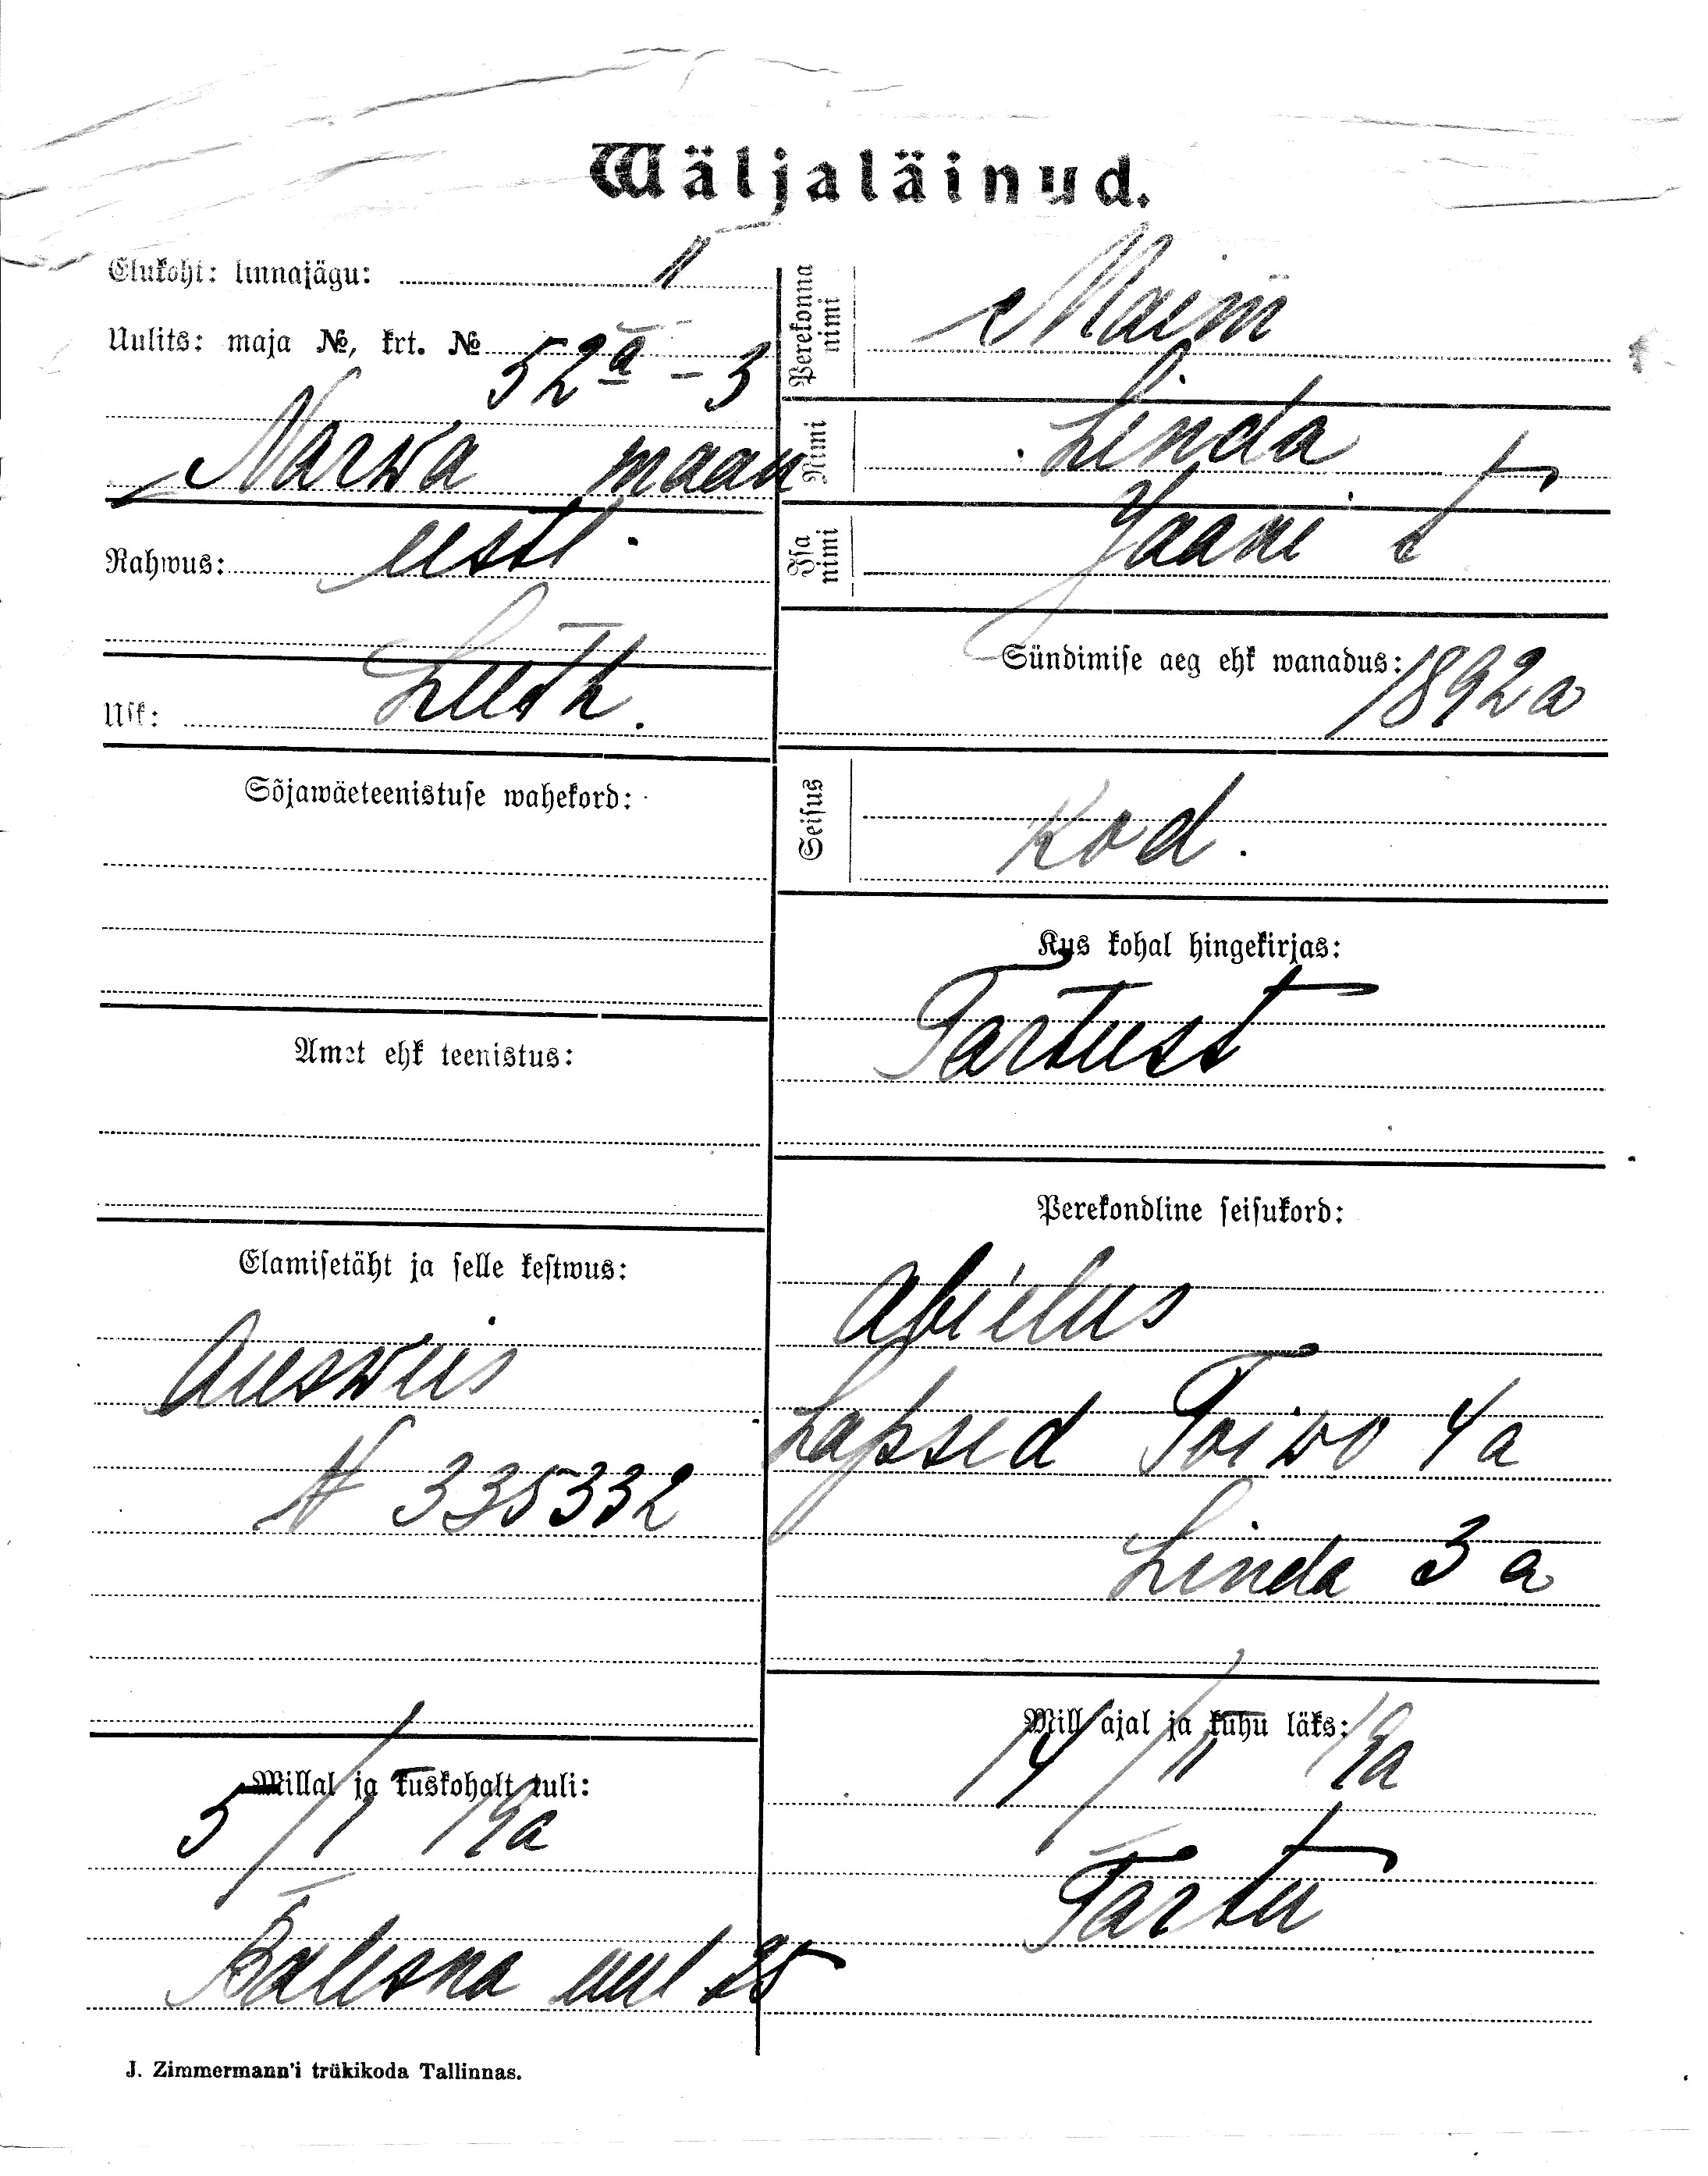 Wäljaläinud.
Elukoht: linnajägu: II
Uulits: maja №, krt. № 52a - 3
Narwa maan
Rahwus: eesti
Usk: Luth.
Sõjawäeteenistuse wahekord:
Amet ehk teenistus:
Elamisetäht ja selle kestwus:
Ausweis
N 335332
Millal ja kuskohalt tuli:
5/I 19a
uul 25
Perekonna nimi Maim
Nimi Linda
Isa nimi Jaani t
Sündimise aeg ehk wanadus: 1892a
Seisus Kod.
Kus kohal hingekirjas:
Tartust
Perekondline seisukord:
Abielus
Lapsed Toiwo 4a
Linda 3a
Mill ajal ja kuhu läks:
14/II 19a
Tartu
J. Zimmermann'i trükikoda Tallinnas.